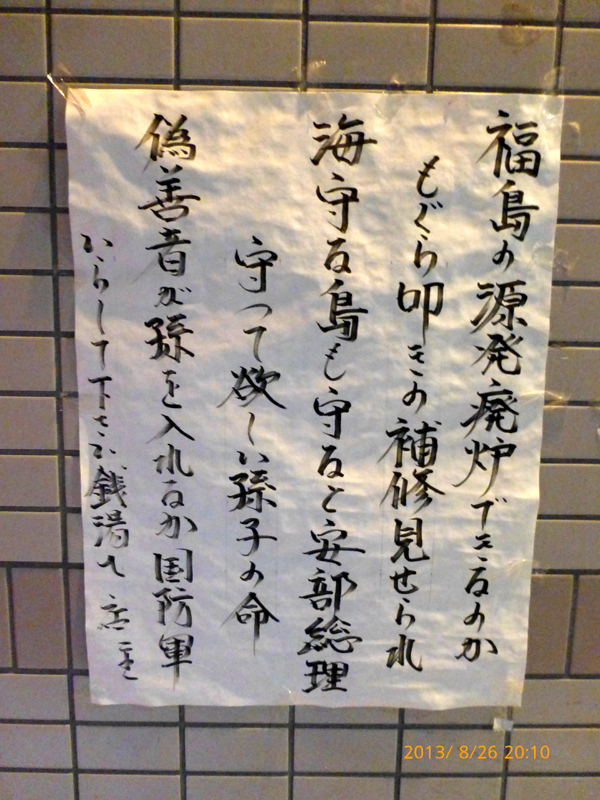 福島の源発廃炉できるのか
もぐら叩きの補修見せられ
海守る島も守ると安部総理
守って欲しい孫子の命
偽善者が孫を入れるか国防軍
いらして下さい銭湯へ 店主
2013/ 8/26 20:10